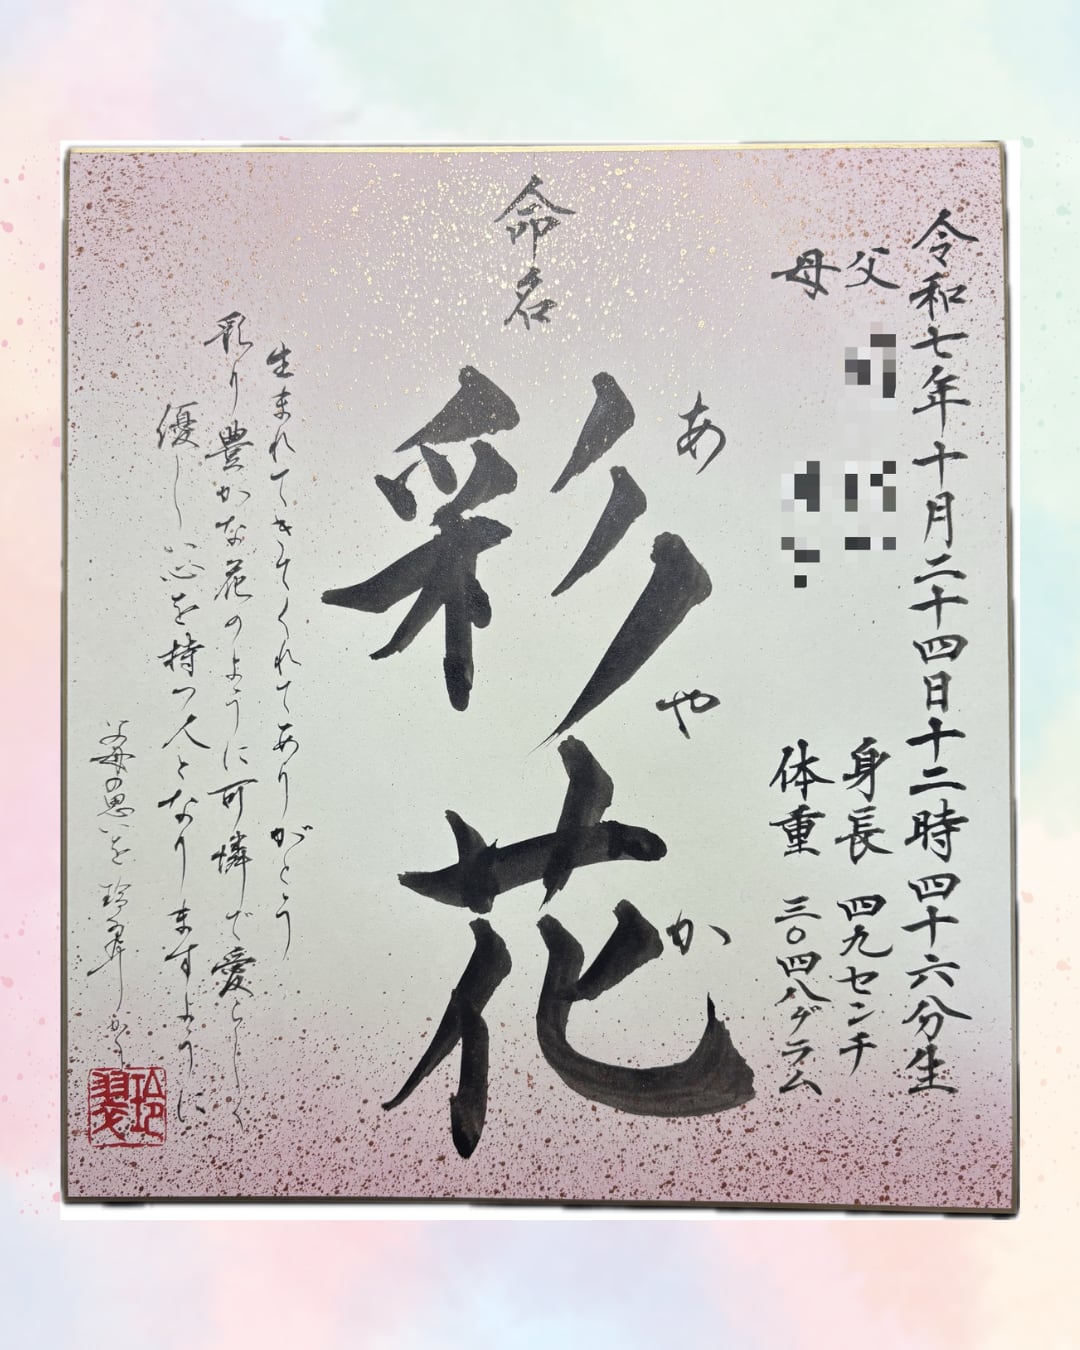 令和七年十月二十四日十二時四十六分生
父
母
身長 四九センチ
体重 三〇四八グラム
命名
彩花
あやか
生まれてきてくれてありがとう
彩り豊かな花のように可憐で愛らしく
優しい心を持つ人となりますように
父母の思いを